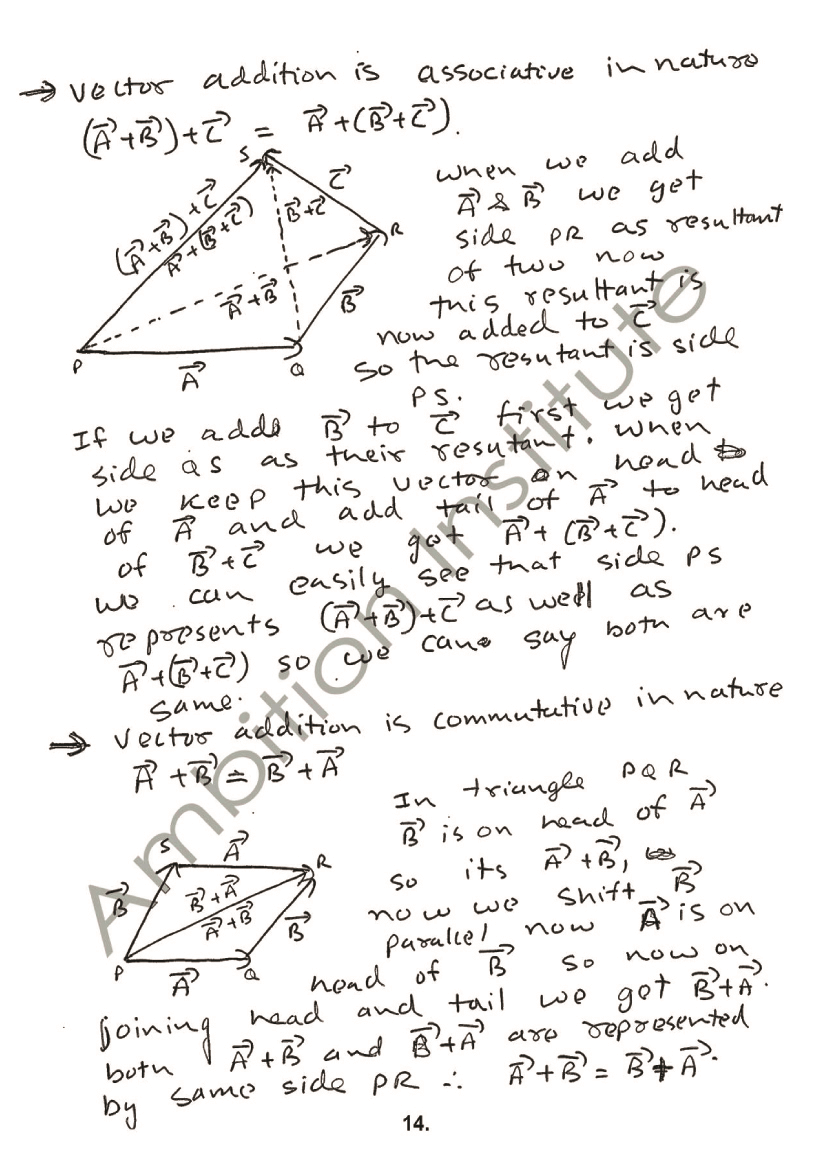 → Vector addition is associative in nature
(A⃗+B⃗)+C⃗ = A⃗+(B⃗+C⃗).
S
C⃗
(A⃗+B⃗)+C⃗
A⃗+(B⃗+C⃗)
B⃗+C⃗
R
A⃗+B⃗
B⃗
P
A⃗
Q
when we add
A⃗ & B⃗ we get
side PR as resultant
of two now
this resultant is
now added to C⃗
so the resutant is side
PS.
If we adds B⃗ to C⃗ first we get
side QS as their resutant. when
we keep this vector on head
of A⃗ and add tail of A⃗ to head
of B⃗+C⃗ we get A⃗+(B⃗+C⃗).
we can easily see that side PS
represents (A⃗+B⃗)+C⃗ as well as
A⃗+(B⃗+C⃗) so we can say both are
same.
⇒ Vector addition is commutative in nature
A⃗+B⃗ = B⃗+A⃗
S
A⃗
R
B⃗
B⃗+A⃗
A⃗+B⃗
B⃗
P
A⃗
Q
In triangle PQR
B⃗ is on head of A⃗
so its A⃗+B⃗,
now we shift B⃗
parallel now A⃗ is on
head of B⃗ so now on
joining head and tail we get B⃗+A⃗.
both A⃗+B⃗ and B⃗+A⃗ are represented
by same side PR ∴ A⃗+B⃗ = B⃗+A⃗.
14.
Ambition Institute